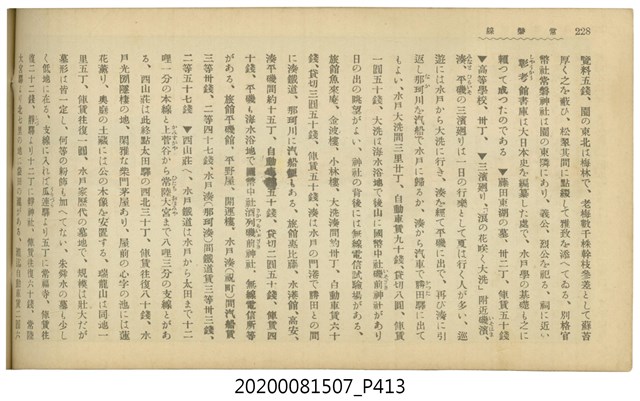 228
覽料五錢、園の東北は梅林で、老梅數千株幹枝參差として蘇苔
厚く之を蔽ひ、松翠其間に點綴して雅致を添へてゐる、別格官
幣社常磐神社は園の東隣にあり、義公、烈公を祀る、祠に近い
彰考館書庫は大日本史を編纂した處で、水戸學の基礎も之に
賴つて成つたのである ▼藤田東湖の墓、卅二丁、俥賃五十錢
▼高等學校、卅丁、 ▼三濱廻り、「濱の花咲く大洗」附近磯濱、
湊、平磯の三濱廻りは一日の行樂として夏は行く人が多い、巡
遊には水戸から大洗に行き、湊を經て平磯に出で、再び湊に引
返し那珂川を汽船で水戸に歸るか、湊から汽車で勝田驛に出て
もよい、水戸大洗間三里卅丁、自動車賃九十錢、貸切八圓、俥賃
一圓五十錢、大洗は海水浴地で後山に國幣中社磯前神社があり
日の出の眺望がよい、神社の背後には無線電信試驗場がある、
旅館魚來庵、金波樓、小林樓、大洗湊間約卅丁、自動車賃六十
錢、貸切三圓五十錢、俥賃五十錢、湊は水戸の門港で勝田との間
に湊鐵道、那珂川に汽船便もある、旅館惠比藤、水港館、高安、
湊平磯間約十五丁、自動車賃五十錢、貸切二圓五十錢、俥賃四
十錢、平磯も海水浴地で國幣中社酒列磯前神社、無線電信所等
がある、旅館平磯館、平野屋、開運樓、水戸湊(祝町)間汽船賃
三等卅錢、二等四十七錢、水戸湊(那珂湊)間鐵道賃三等卅三錢、
二等五十七錢 ▼西山莊へ、水戸鐵道は水戸から太田まで十二
哩一分の本線と上菅谷から常陸大宮まで八哩三分の支線とがあ
る、西山莊は此終點太田驛の西北三十丁、俥賃往復八十錢、水
戸光圀隱棲の地、閑雅な柴門茅屋あり、屋前の心字の池には蓮
花薫り、奧庭の土藏には公の木像を安置する、瑞龍山は同地一
里五丁、俥賃往復一圓、水戸家歷代の墓地で、規模は壯大だが
墓形は皆一定し、何等の粉飾も加へてない、朱舜水の墓も少し
く低地に在る、支線に入れば瓜連驛より五丁に常福寺、俥賃往
復二十二錢、靜驛より十二丁に靜神社、俥賃往復六十錢、常陸
20200081507_P413